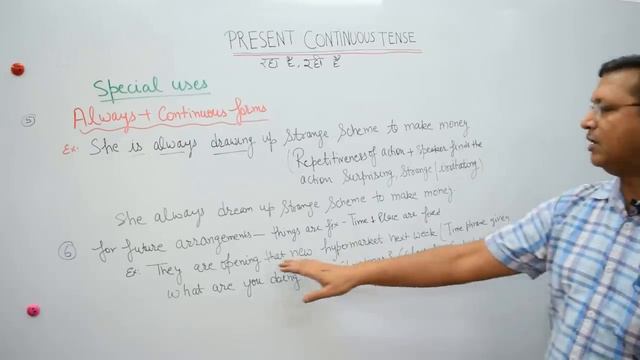 PRESENT CONTINUOUS TENSE
रहा है, रही है
Special uses
⑤ Always + Continuous forms
Ex:- She is always drawing up strange scheme to make money
(Repetitiveness of action + speaker finds the
action surprising, strange / irritating)
She always dream up strange scheme to make money
⑥ For future arrangements — things are fix - Time & Place are fixed
Ex: They are opening that new hypermarket next week (Time phrase given
What are you doing